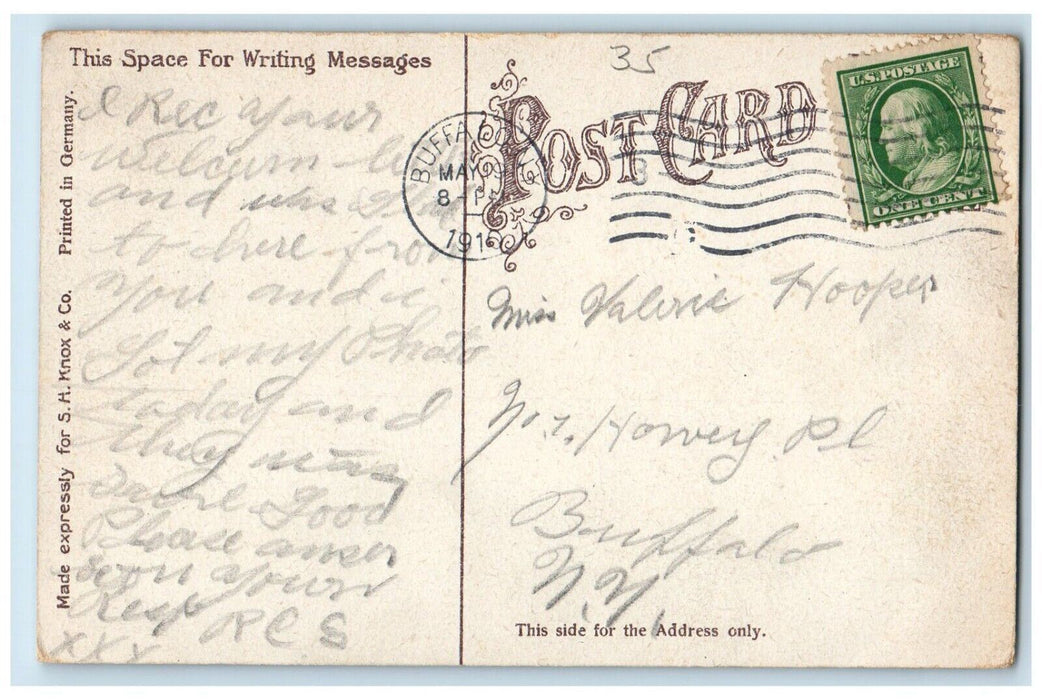 This Space For Writing Messages
I Rec your
welcum
and was
to here from
you and i
Got my Photo
today and
they was
Good
Please anser
soon yours
Resp R C S
xxx
Made expressly for S. H. Knox & Co. Printed in Germany.
35
POST CARD
BUFFALO
MAY
8-P
191
U.S. POSTAGE
ONE CENT
Miss Valerie Hooper
No 7. Howery Pl
Buffalo
N.Y.
This side for the Address only.